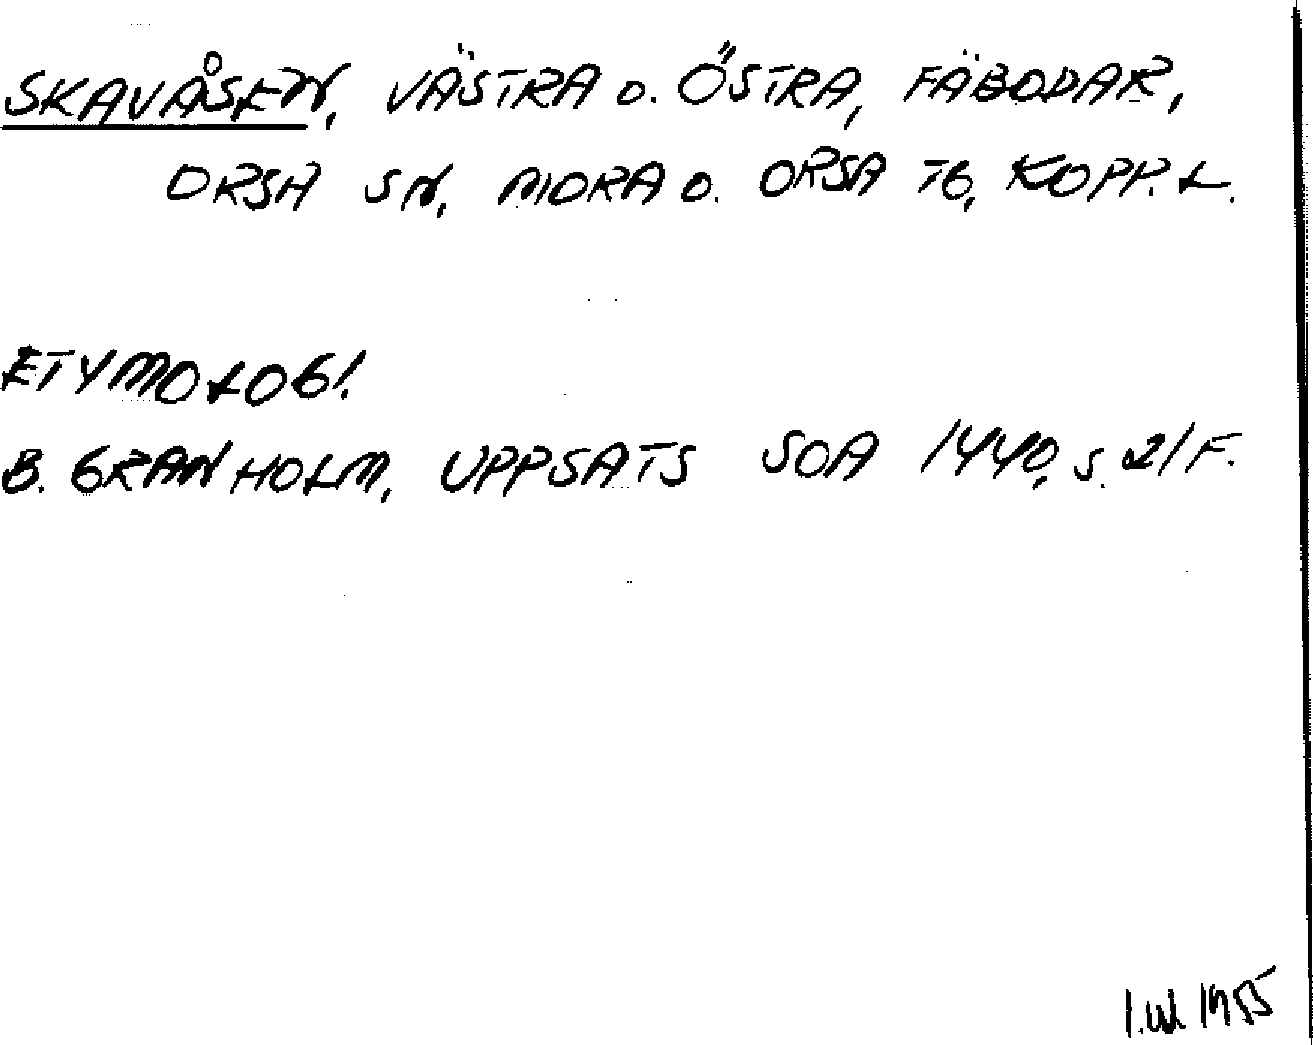 SKAVÅSEN, VÄSTRA O. ÖSTRA, FÄBODAR,
ORSA SN, MORA O. ORSA TG, KOPP. L.
ETYMOLOGI.
B. GRANHOLM, UPPSATS SOA 1440, S. 21 F.
1955